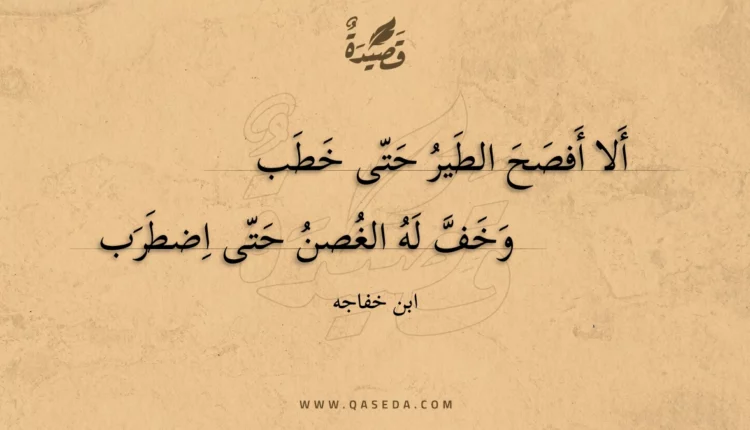 قَصِيدَةٌ
أَلا أَفصَحَ الطَيرُ حَتّى خَطَب
وَخَفَّ لَهُ الغُصنُ حَتّى اِضطَرَب
ابن خفاجه
WWW.QASEDA.COM